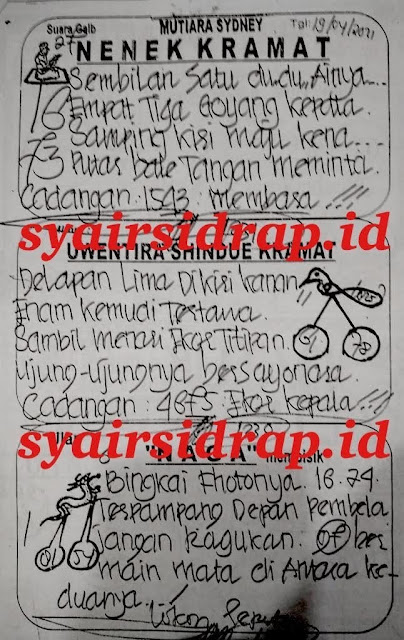 Suara Gaib MUTIARA SYDNEY Tgl: 19/04/2021
27
NENEK KRAMAT
Sembilan Satu duduk Airnya....
16 Empat Tiga Goyang Kepala.
Samping Kisi maju kena....
73 Putas bale Tangan meminta.
Cadangan: 1543: Membasa !!!
syairsidrap.id
UWENTIRA SHINDUE KRAMAT
Delapan Lima Dikisi Kanan
Enam Kemudi Tertawa.
Sambil menari Ekor Titipan
91 78
Ujung-Ujungnya bersayonara.
Cadangan: Ekor Kepala !!!
syairsidrap.id
"NAGA" membisik
Bingkai Fhotonya. 18.74.
Terpampang Depan Pembela
Jangan Ragukan. 07 ber
main mata di Antara ke-
duanya.